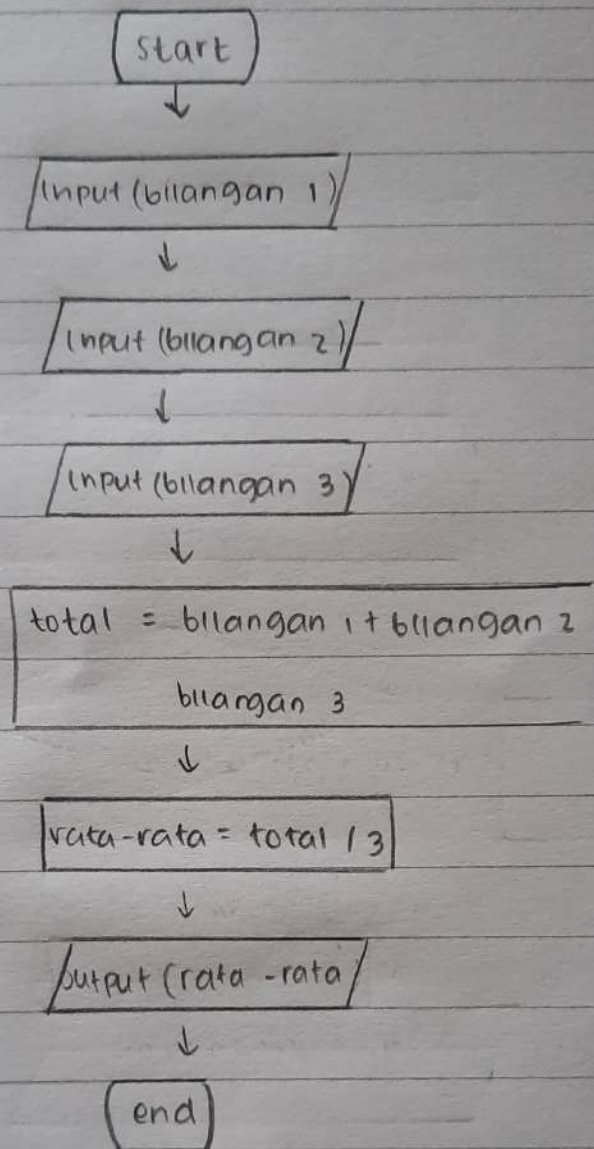 start
Input (bilangan 1)
Input (bilangan 2)
Input (bilangan 3)
total = bilangan 1 + bilangan 2
bilangan 3
rata-rata = total / 3
output (rata-rata
end